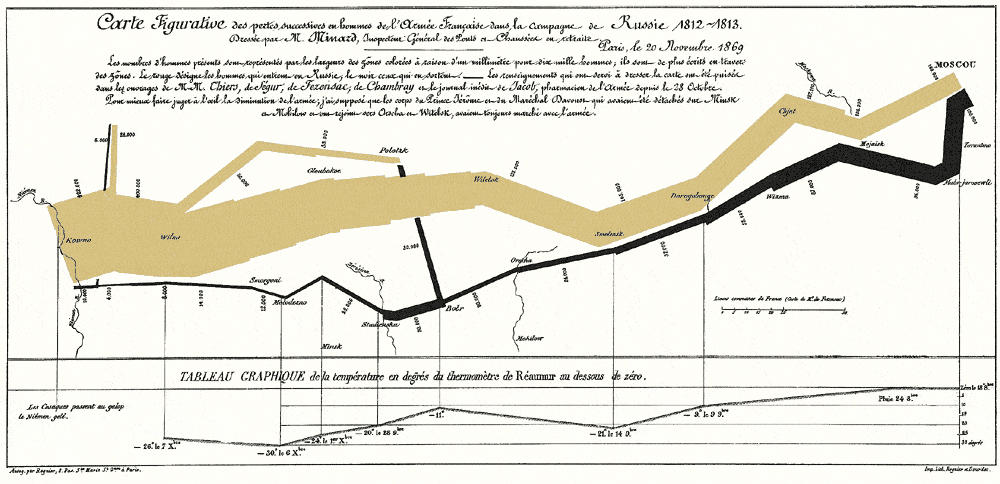 Carte Figurative des pertes successives en hommes de l'Armée Française dans la campagne de Russie 1812-1813.
Dressée par M. Minard, Inspecteur Général des Ponts et Chaussées en retraite.
Paris, le 20 Novembre 1869
Les nombres d'hommes présents sont représentés par les largeurs des zônes colorées à raison d'un millimètre pour dix mille hommes; ils sont de plus écrits en travers
des zônes. Le rouge désigne les hommes qui entrent en Russie, le noir ceux qui en sortent. Les renseignements qui ont servi à dresser la carte ont été puisés
dans les ouvrages de M.M. Thiers, de Ségur, de Fezensac, de Chambray et le journal inédit de Jacob, pharmacien de l'Armée depuis le 28 Octobre.
Pour mieux faire juger à l'œil la diminution de l'armée, j'ai supposé que les corps du Prince Jérôme et du Maréchal Davoust qui avaient été détachés sur Minsk
et Mohilow et ont rejoint vers Orscha et Witebsk, avaient toujours marché avec l'armée.
MOSCOU
100.000
Tarantino
Malo-jarosewli
Mojaisk
Chjat
Wizma
Dorogobouge
Smolensk
Orscha
Mohilow
Witebsk
Polotzk
Gloubokoe
Wilna
Kowno
Bobr
Studienska
Minsk
Molodezno
Smorgoni
422.000
400.000
22.000
6.000
33.000
175.000
145.000
127.100
37.000
24.000
20.000
50.000
28.000
12.000
14.000
8.000
4.000
10.000
30.000
Lieues communes de France (Carte de M. de Fezensac)
TABLEAU GRAPHIQUE de la température en degrés du thermomètre de Réaumur au dessous de zéro.
Les Cosaques passent au galop
le Niémen gelé.
Zéro le 18 8.bre
Pluie 24 8.bre
5
10
15
20
25
30 degrés
- 9.° le 9 9.bre
- 21.° le 14 9.bre
- 11.°
- 20.° le 28 9.bre
- 24.° le 1.er X.bre
- 30.° le 6 X.bre
- 26.° le 7 X.bre
Autog. par Regnier, 8. Pas. S.te Marie S.t G.ain à Paris.
Imp. Lith. Regnier et Dourdet.